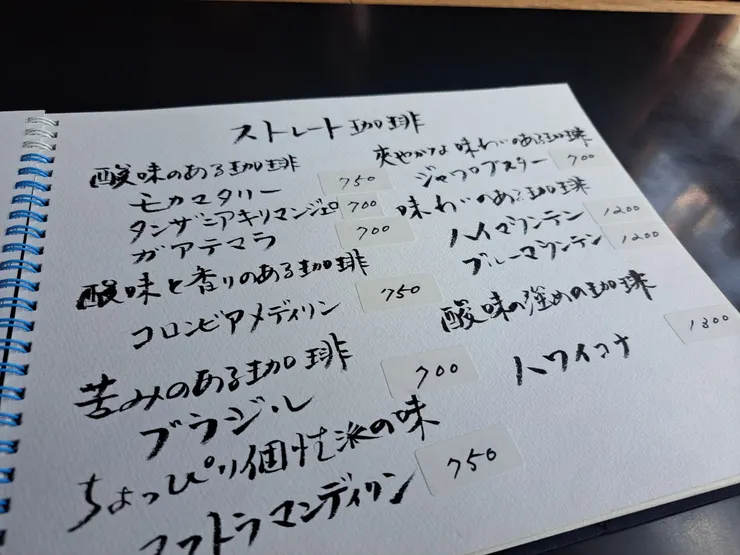 ストレート珈琲
酸味のある珈琲
モカマタリー 750
タンザニアキリマンジェロ 700
ガアテマラ 700
酸味と香りのある珈琲
コロンビアメディリン 750
苦みのある珈琲
ブラジル 700
ちょっぴり個性派の味
マンディリン 750
爽やかな味わいのある珈琲
700
味わいのある珈琲
ハイマウンテン 1200
ブルーマウンテン 1200
酸味の強めの珈琲
ハワイコナ 1300